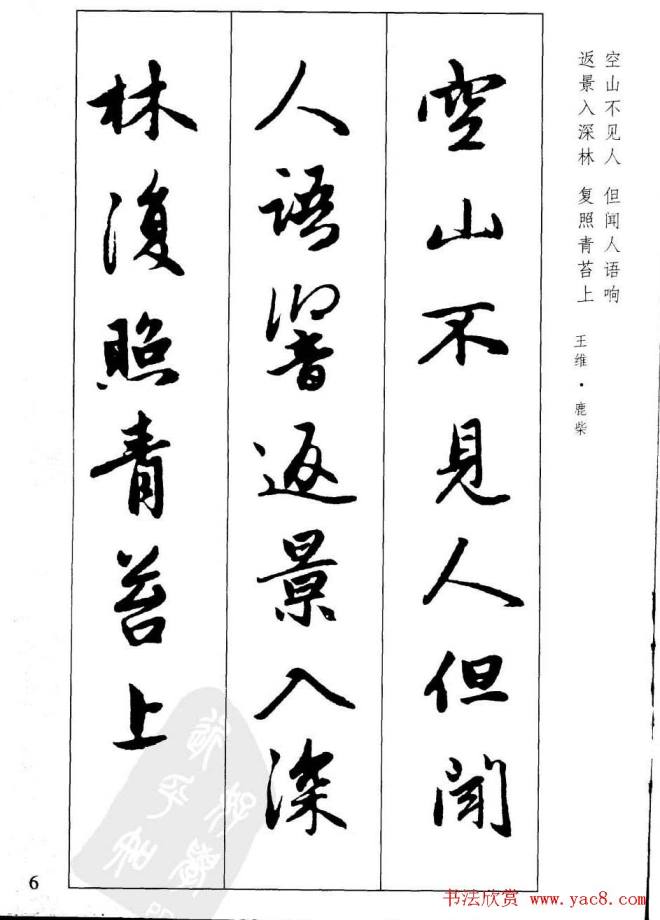 空山不见人 但闻人语响
返景入深林 复照青苔上
王维·鹿柴
空山不見人但聞
人語響返景入深
林復照青苔上
6
书法欣赏 www.yac8.com